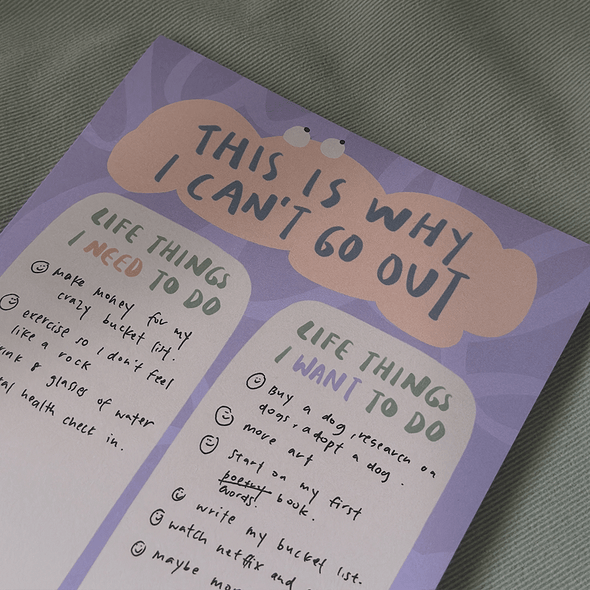 THIS IS WHY
I CAN'T GO OUT
LIFE THINGS
I NEED TO DO
make money for my
crazy bucket list.
exercise so I don't feel
like a rock
8 glasses of water
health check in.
LIFE THINGS
I WANT TO DO
Buy a dog, research on
dogs, adopt a dog.
move art
start on my first
poetry book.
words.
write my bucket list.
watch netflix and
maybe